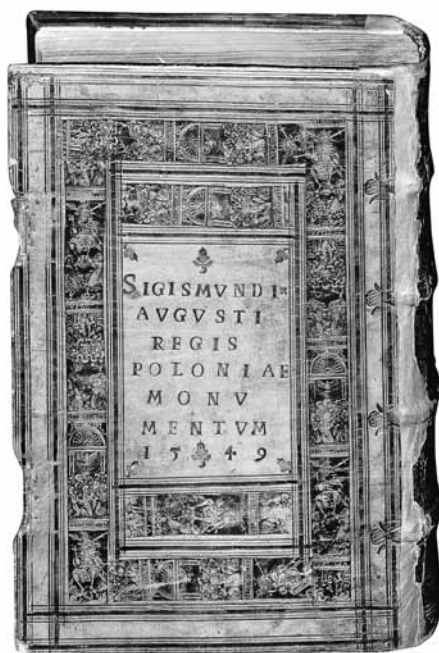 SIGISMVNDI
AVGVSTI
REGIS
POLONIAE
MONV
MENTVM
1549